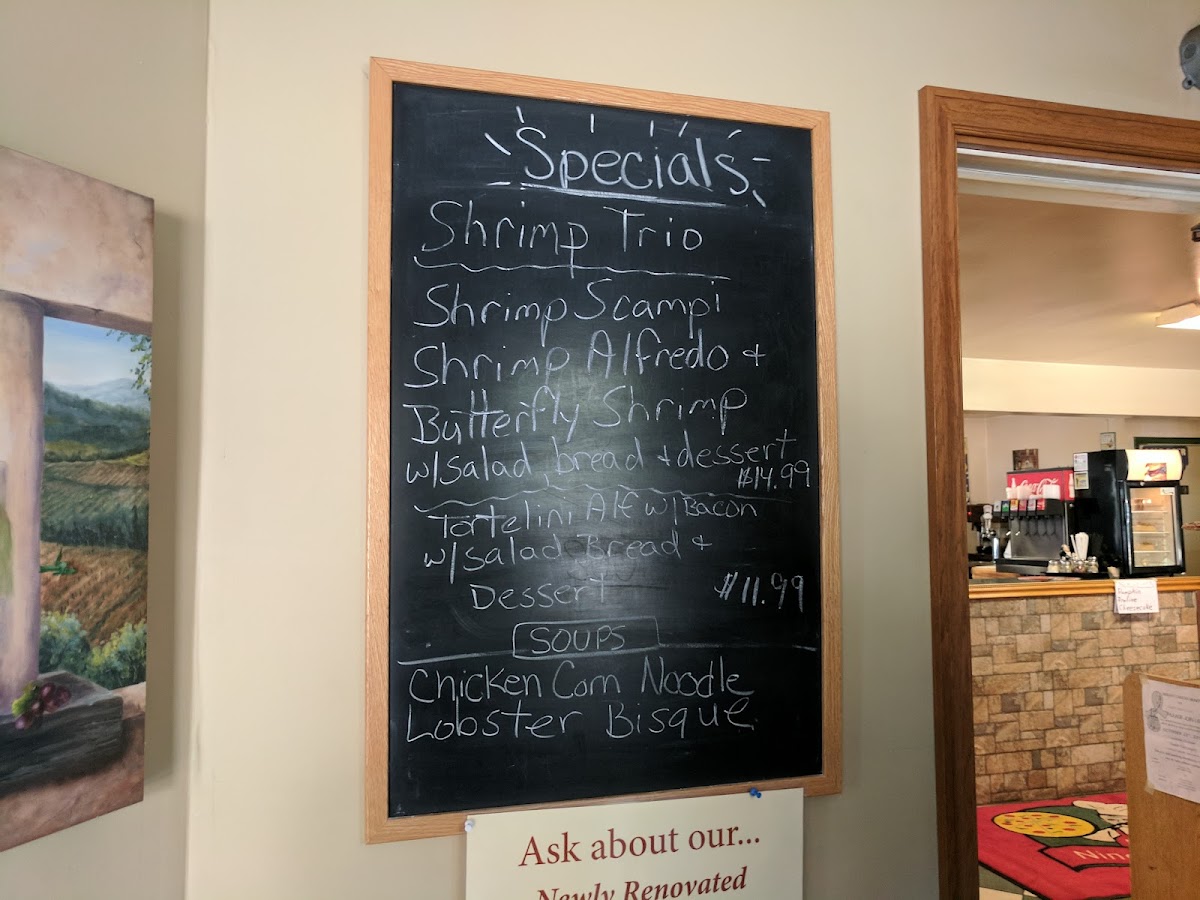 Specials
Shrimp Trio
Shrimp Scampi
Shrimp Alfredo +
Butterfly Shrimp
w/Salad, bread + dessert
$14.99
Tortelini Alf w/Bacon
w/Salad Bread +
Dessert $11.99
SOUPS
Chicken Corn Noodle
Lobster Bisque
Ask about our...
Newly Renovated
Pumpkin
Cheesecake
Nin